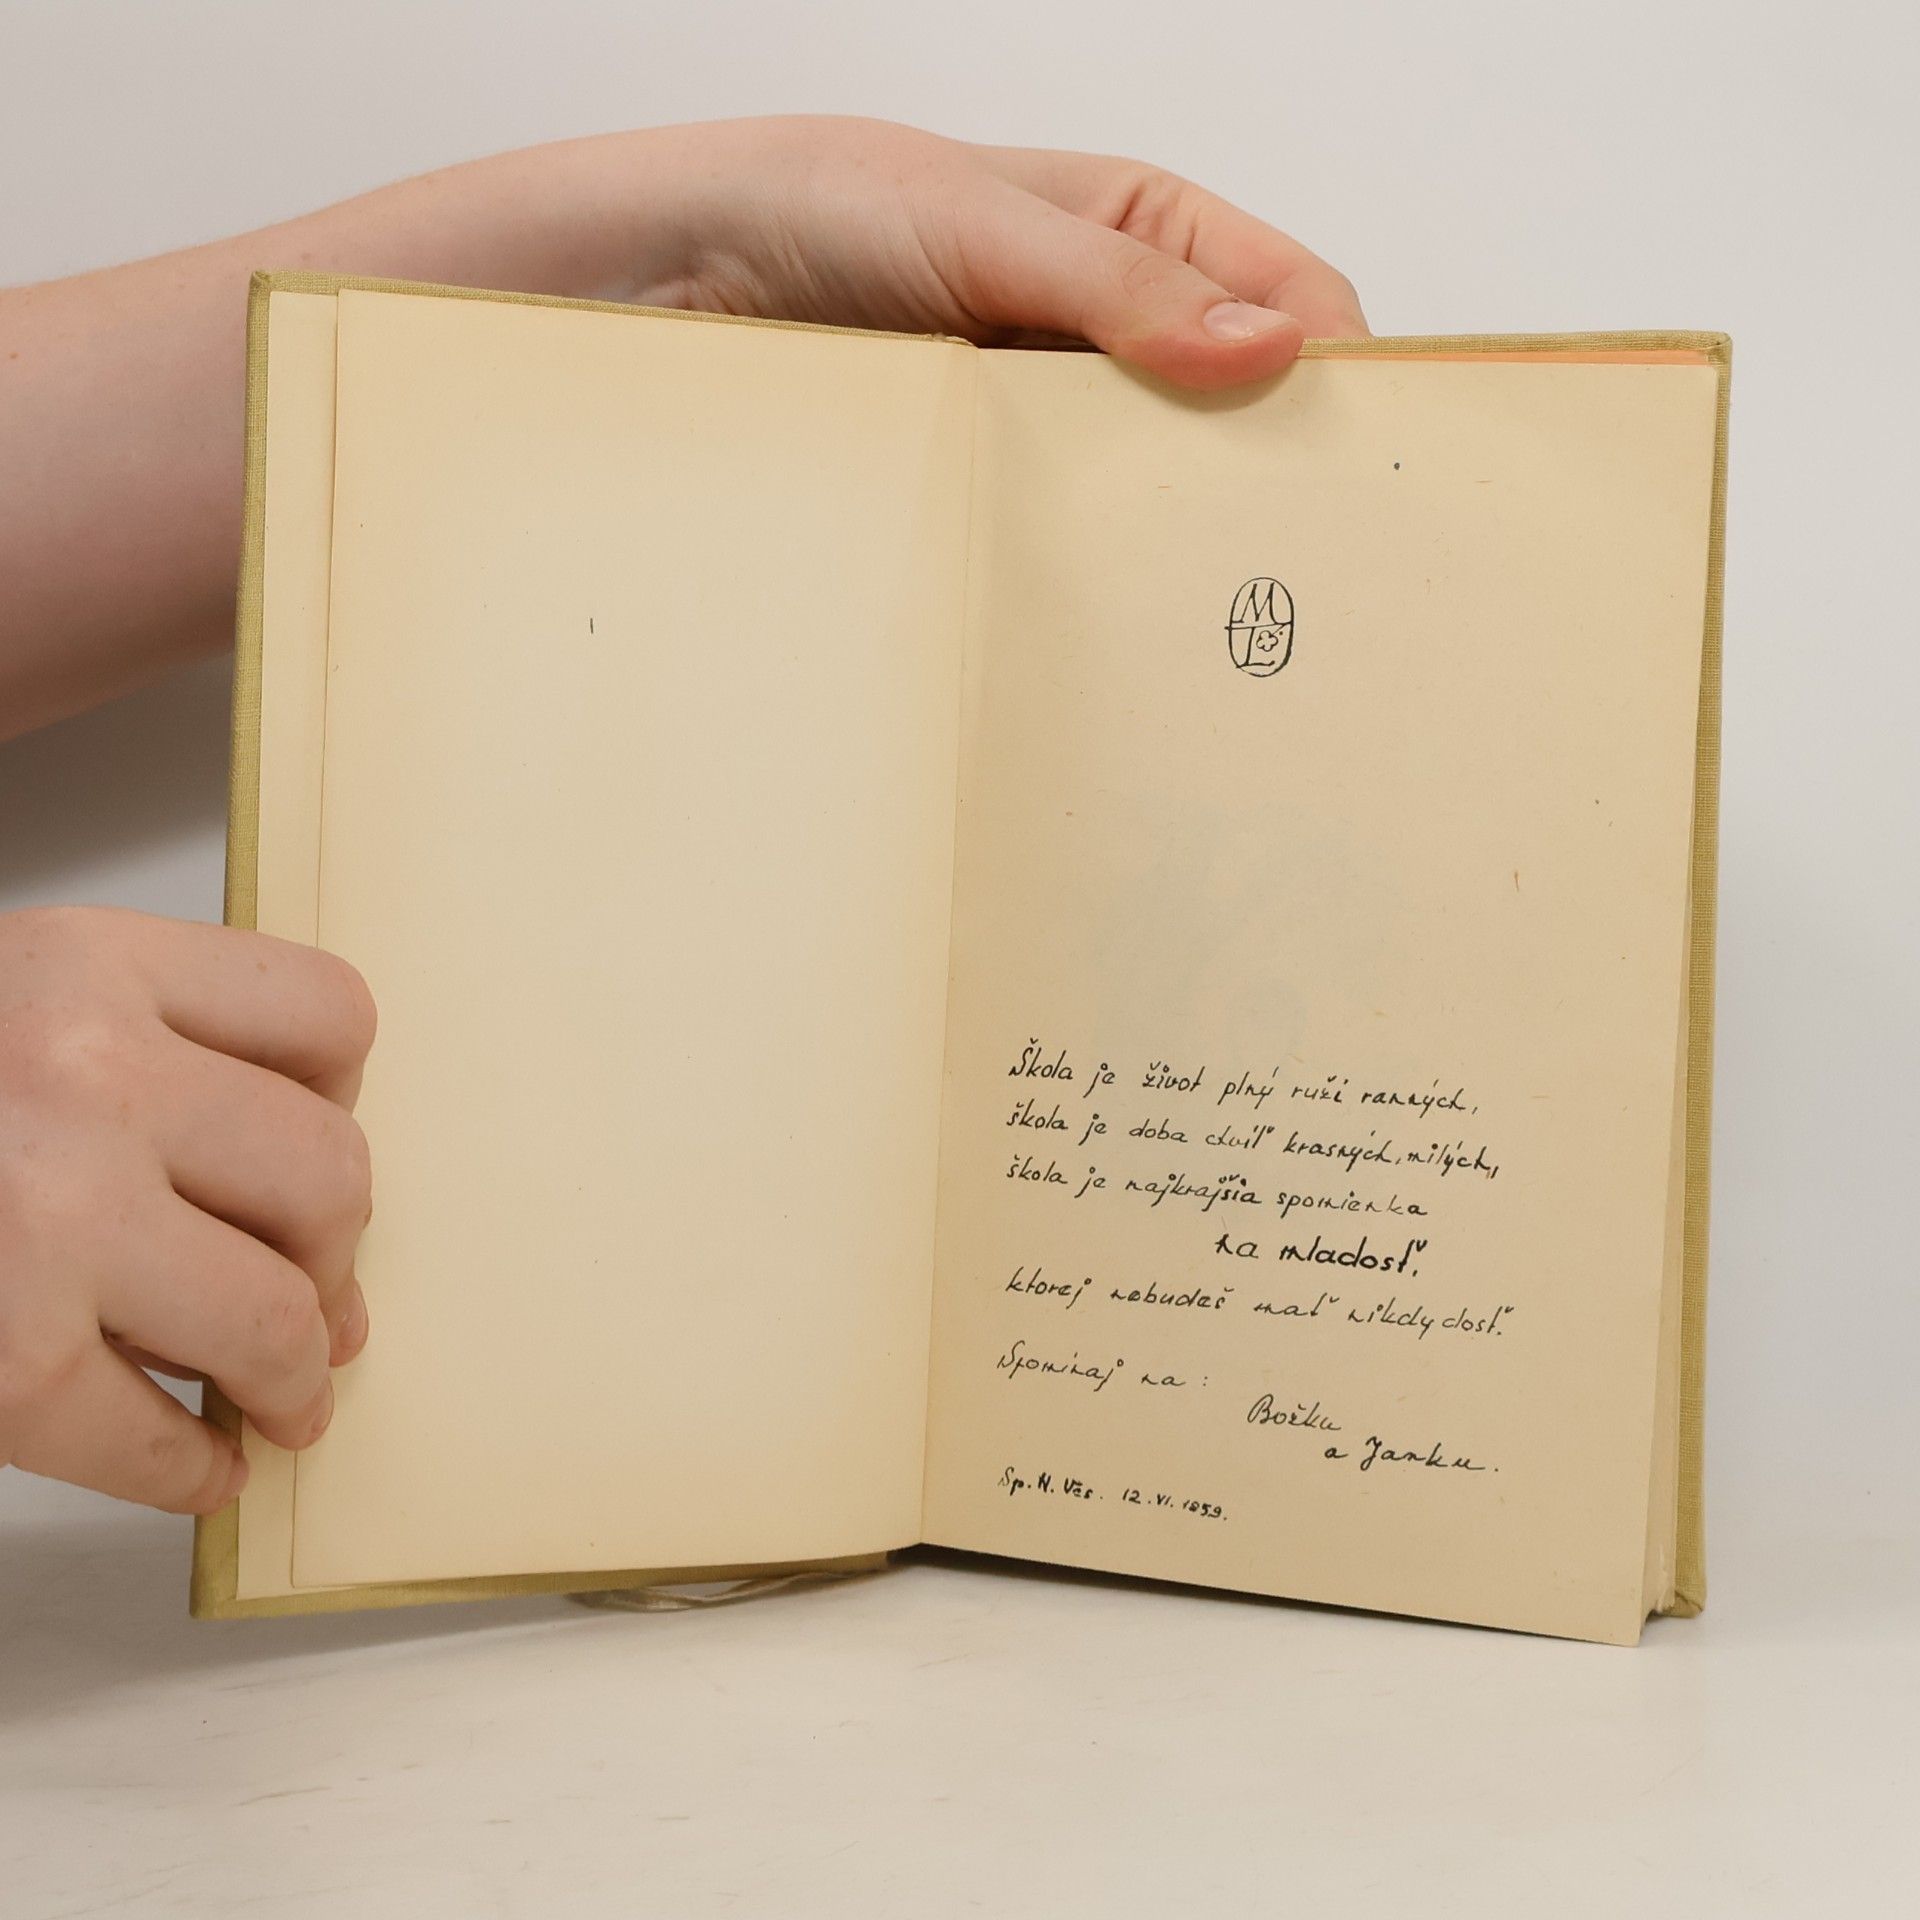 ML
Škola je život plný ruží ranných,
škola je doba chvíľ krasných, milých,
škola je najkrajšia spomienka
na mladosť,
ktorej nebudeš mať nikdy dosť.
Spomínaj na :
Božku
a Janku.
Sp. N. Ves. 12. VI. 1959.